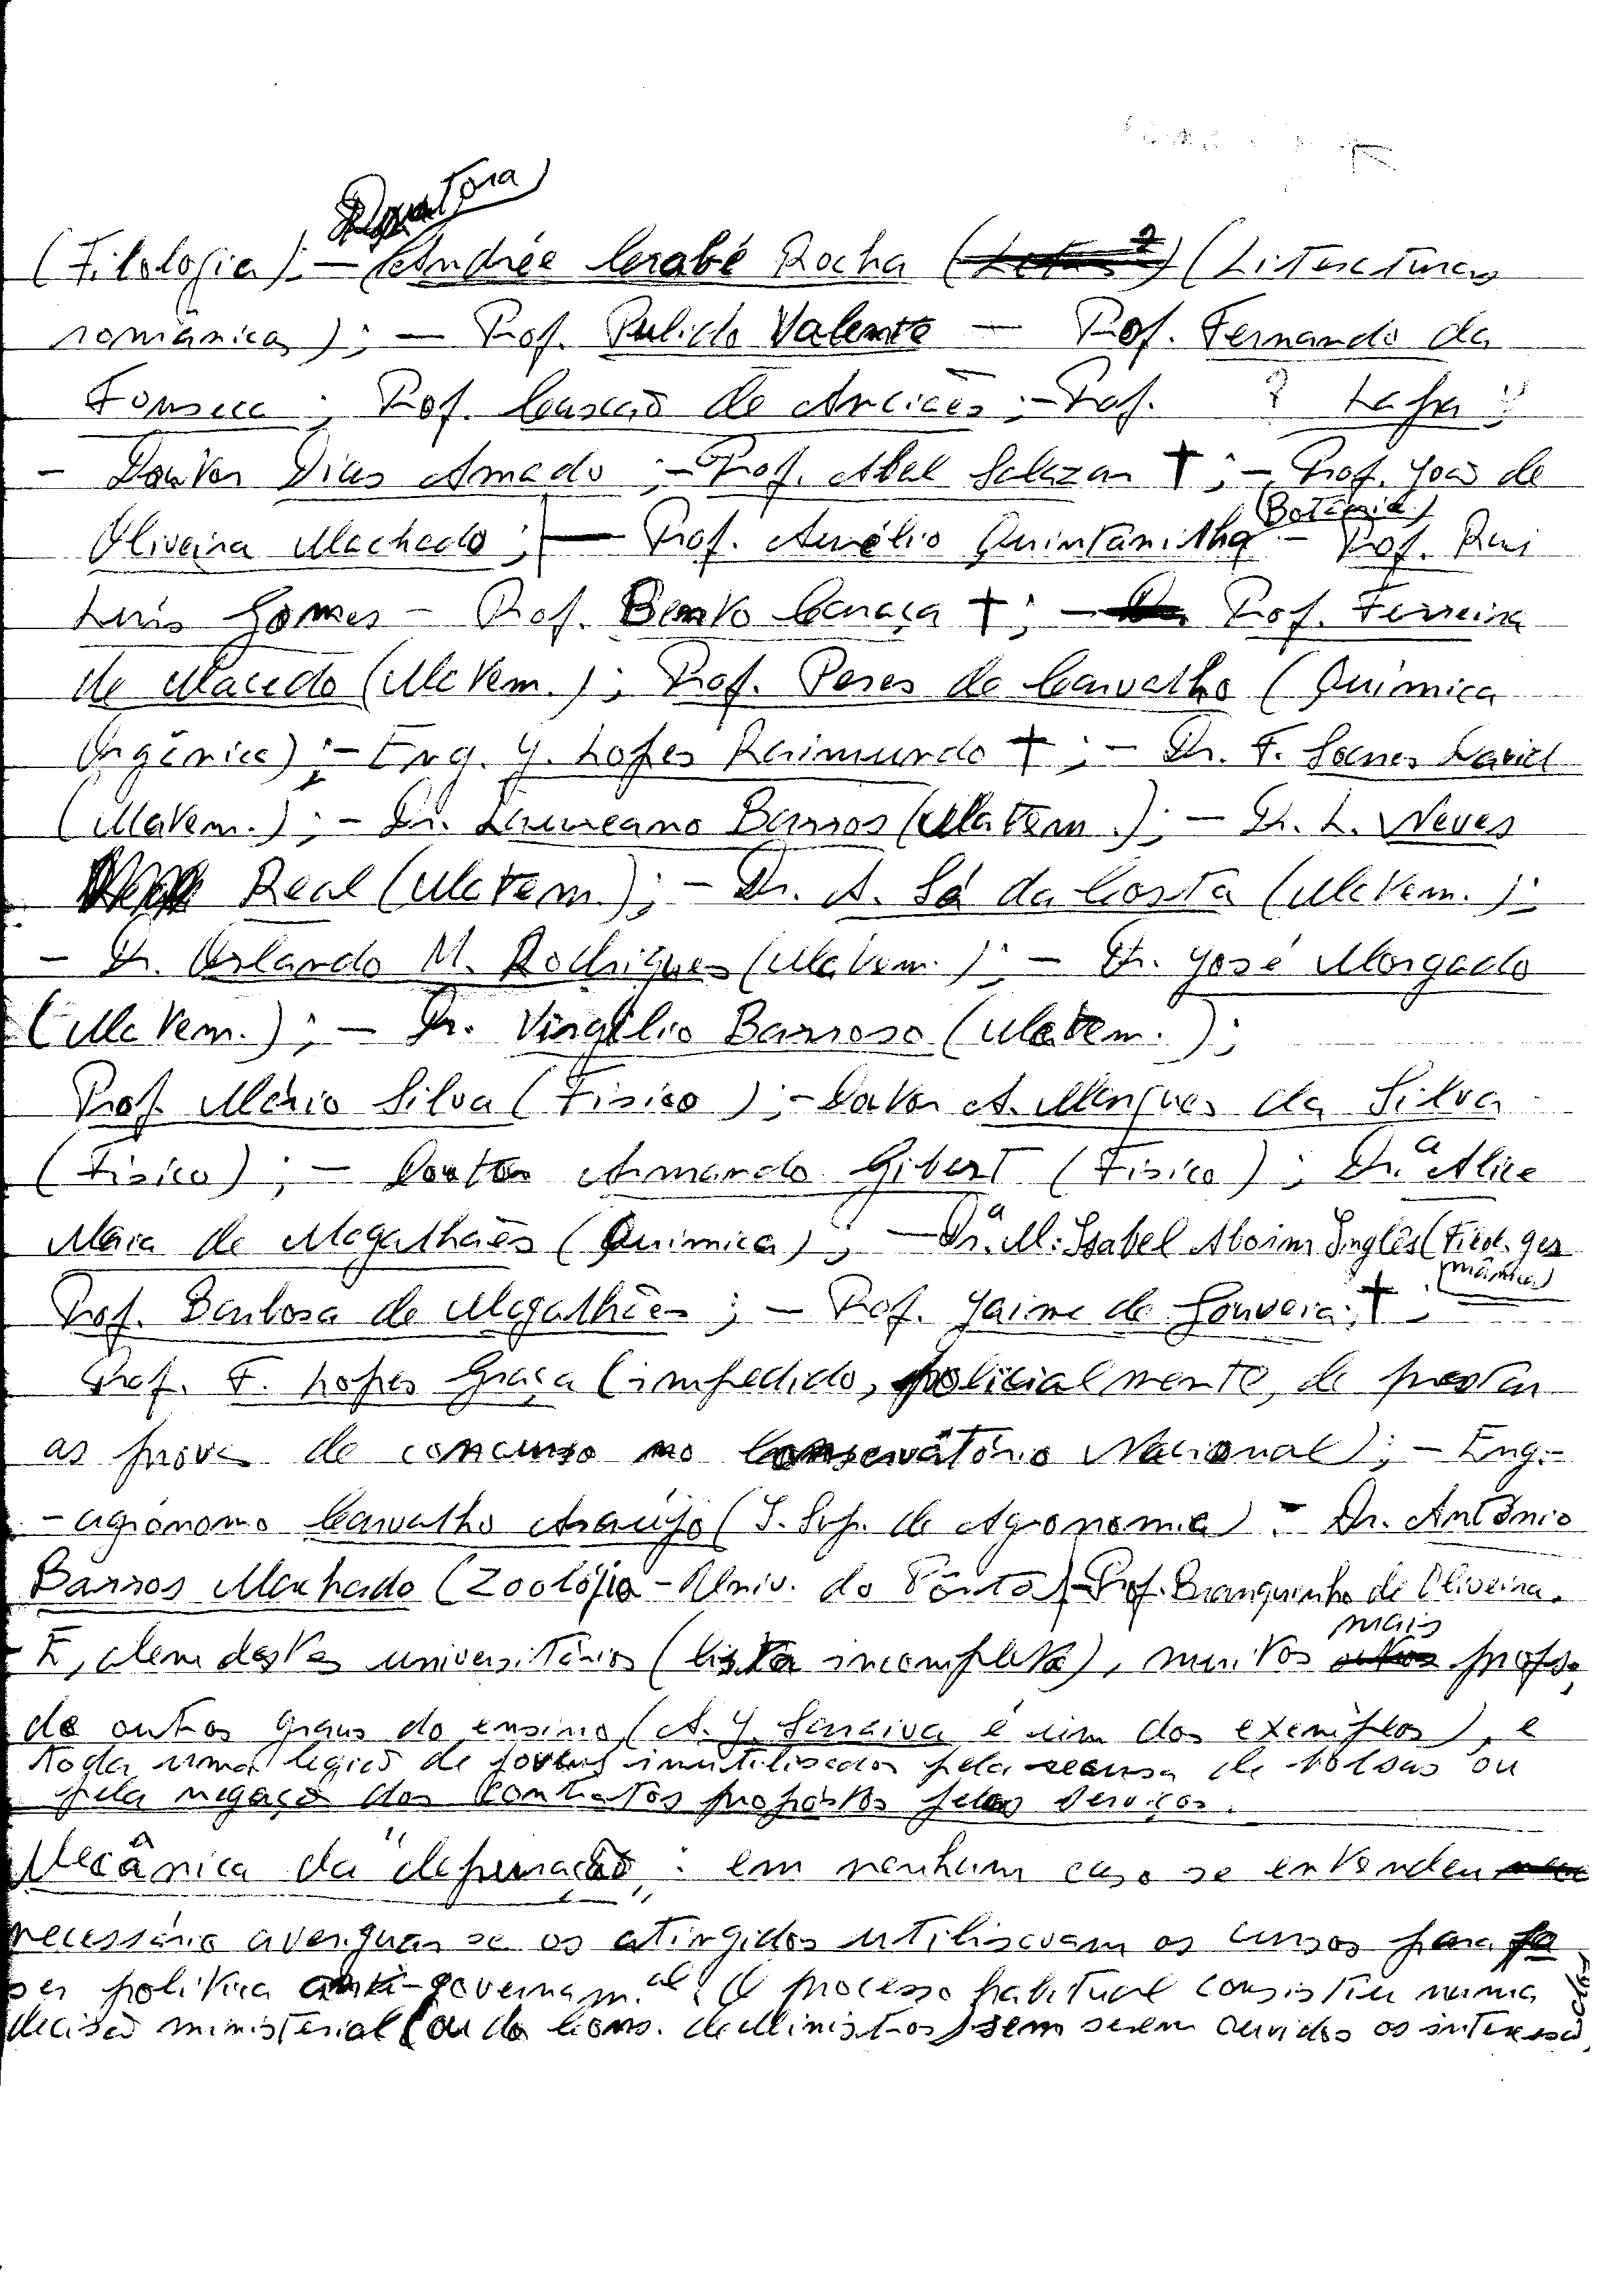 Doutora)
(Filologia); — Andrée Crabé Rocha (Letras?) (Literaturas
românicas); — Prof. Pulido Valente — Prof. Fernando da
Fonseca; Prof. Cascão de Anciães; – Prof. ? Lapa;
– Doutor Dias Amado; – Prof. Abel Salazar †; – Prof. João de
Oliveira Machado; — Prof. Aurélio Quintanilha (Botânica) – Prof. Rui
Luís Gomes – Prof. Bento Caraça †; – Prof. Ferreira
de Macedo (Matem.); Prof. Peres de Carvalho (Química
Orgânica); – Eng. J. Lopes Raimundo †; – Dr. F. Soares David
(Matem.); – Dr. Laureano Barros (Matem.); – Dr. L. Neves
Real (Matem.); – Dr. A. Sá da Costa (Matem.);
– Dr. Orlando M. Rodrigues (Matem.); – Dr. José Morgado
(Matem.); – Dr. Virgílio Barroso (Matem.);
Prof. Mário Silva (Físico); – Doutor A. Marques da Silva
(Físico); – Doutor Armando Gibert (Físico); Dr.ª Alice
Maia de Magalhães (Química); — Dr.ª M. Isabel Aboim Inglês (Filol. ger
mânica)
Prof. Barbosa de Magalhães; – Prof. Jaime de Gouveia; †
Prof. F. Lopes Graça (impedido, policialmente, de prestar
as provas de concurso no Conservatório Nacional); – Eng.-
-agrónomo Carvalho Araújo (I. Sup. de Agronomia) – Dr. António
Barros Machado (Zoologia – Univ. do Porto) – Prof. Branquinho de Oliveira.
E, alem destes universitários (lista incompleta), muitos mais profs.
de outros graus do ensino (A. J. Saraiva é um dos exemplos), e
toda uma legião de jovens inutilisados pela recusa de bolsas ou
pela negação dos contratos propostos pelos serviços.
Mecânica da "depuração": em nenhum caso se entendeu
necessário averiguar se os atingidos utilisavam os cursos para fa
zer politica anti-governam.al O processo habitual consistiu numa
decisão ministerial (ou do Cons. de Ministros) sem serem ouvidos os interessa